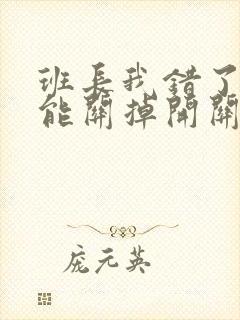 班長我錯了
能關掉開關
庞元英